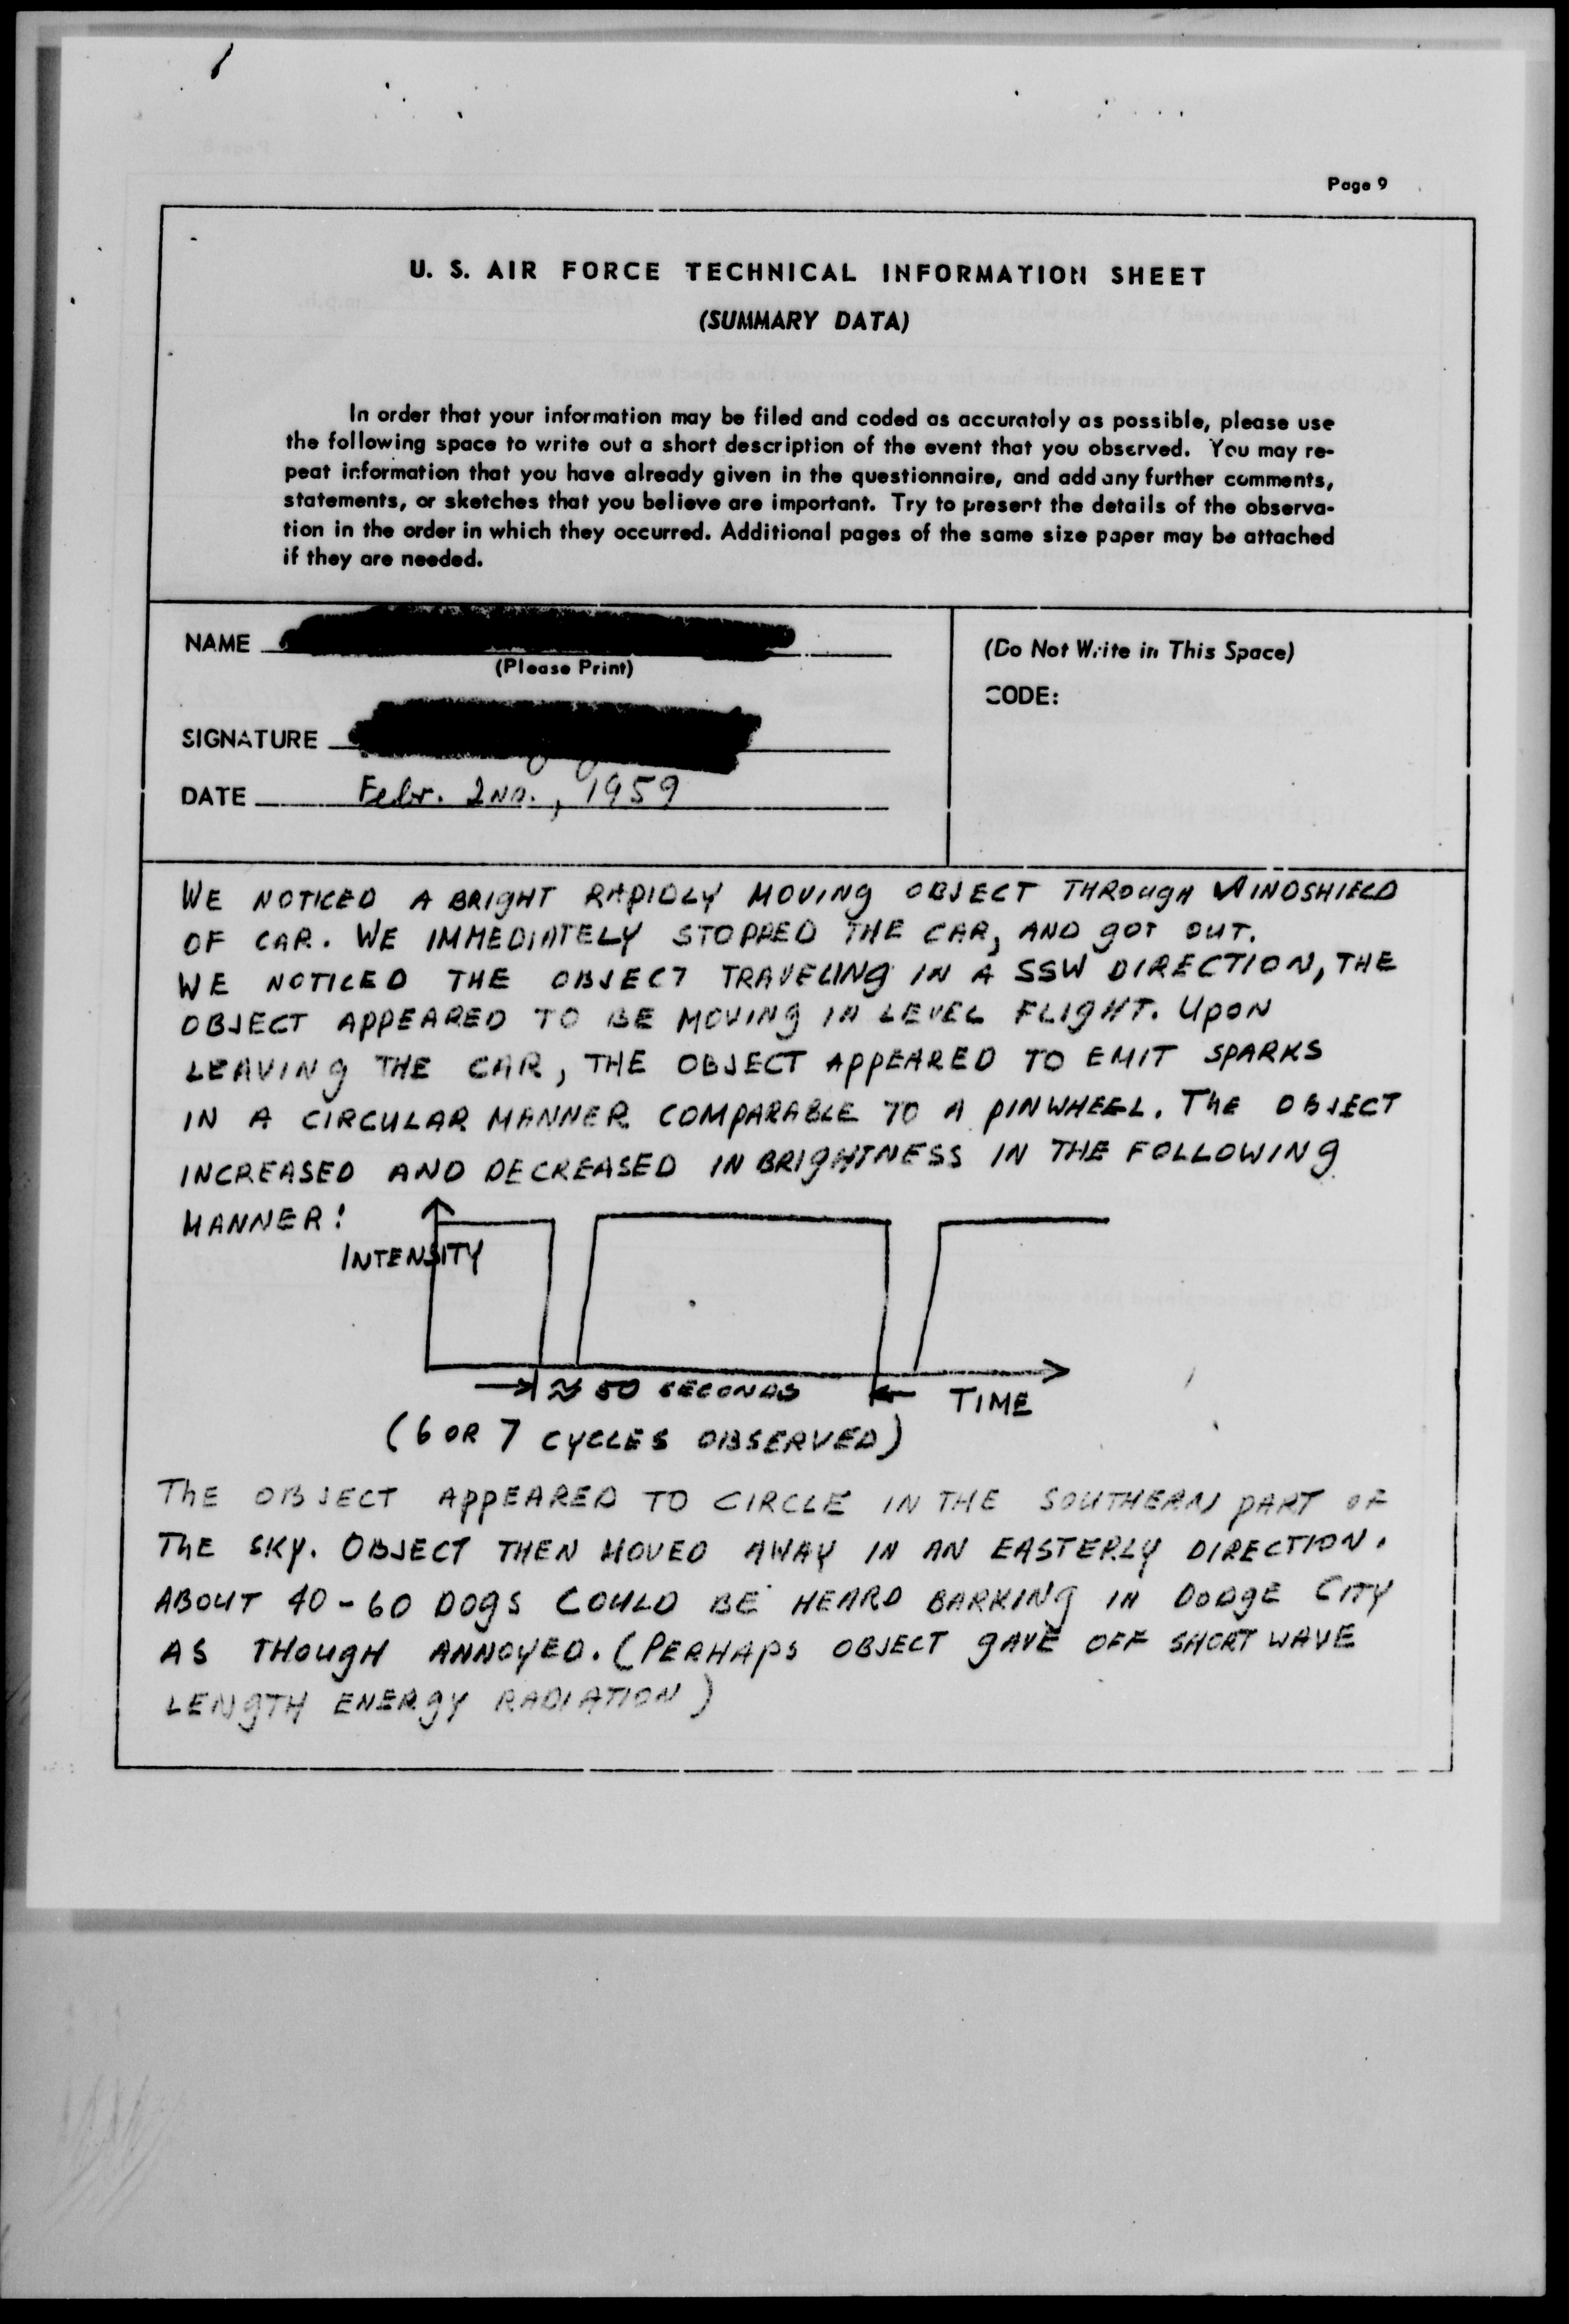 Page 9
U. S. AIR FORCE TECHNICAL INFORMATION SHEET
(SUMMARY DATA)
In order that your information may be filed and coded as accurately as possible, please use
the following space to write out a short description of the event that you observed. You may re-
peat information that you have already given in the questionnaire, and add any further comments,
statements, or sketches that you believe are important. Try to present the details of the observa-
tion in the order in which they occurred. Additional pages of the same size paper may be attached
if they are needed.
NAME
(Please Print)
SIGNATURE
DATE Febr. 2ND., 1959
(Do Not Write in This Space)
CODE:
WE NOTICED A BRIGHT RAPIDLY MOVING OBJECT THROUGH WINDSHIELD
OF CAR. WE IMMEDIATELY STOPPED THE CAR, AND GOT OUT.
WE NOTICED THE OBJECT TRAVELING IN A SSW DIRECTION, THE
OBJECT APPEARED TO BE MOVING IN LEVEL FLIGHT. UPON
LEAVING THE CAR, THE OBJECT APPEARED TO EMIT SPARKS
IN A CIRCULAR MANNER COMPARABLE TO A PINWHEEL. THE OBJECT
INCREASED AND DECREASED IN BRIGHTNESS IN THE FOLLOWING
MANNER:
INTENSITY
≈ 50 SECONDS
TIME
(6 OR 7 CYCLES OBSERVED)
THE OBJECT APPEARED TO CIRCLE IN THE SOUTHERN PART OF
THE SKY. OBJECT THEN MOVED AWAY IN AN EASTERLY DIRECTION.
ABOUT 40-60 DOGS COULD BE HEARD BARKING IN DODGE CITY
AS THOUGH ANNOYED. (PERHAPS OBJECT GAVE OFF SHORT WAVE
LENGTH ENERGY RADIATION)